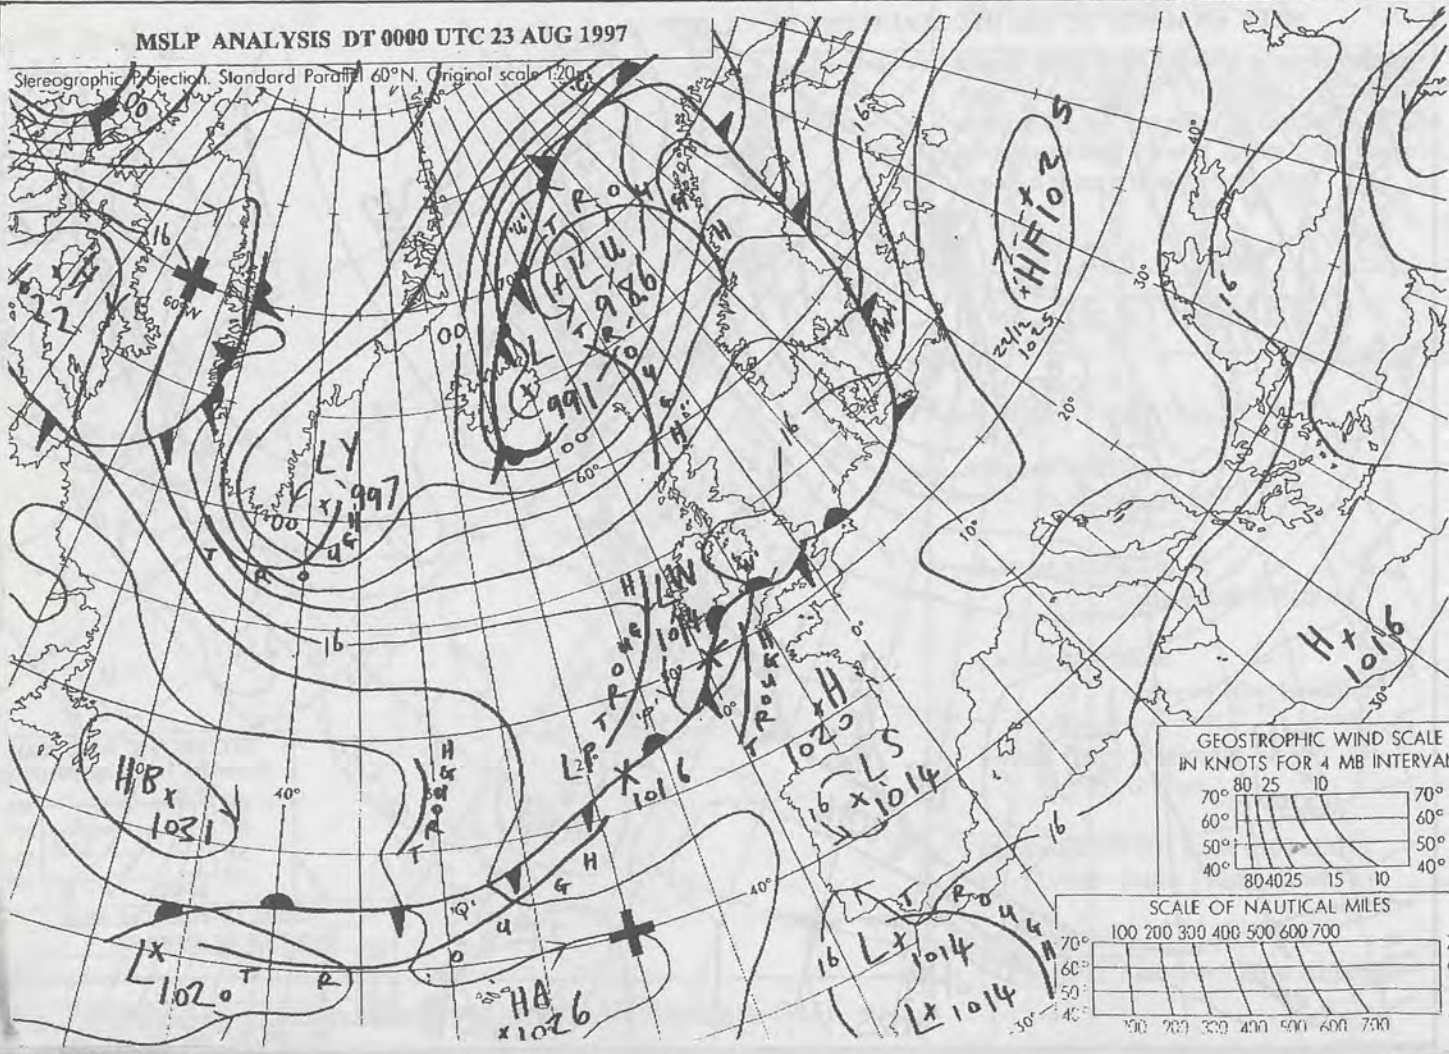 MSLP ANALYSIS DT 0000 UTC 23 AUG 1997
Stereographic Projection. Standard Parallel 60°N. Original scale 1:20m
16
60°W
00
LU
986
TROUGH
TROUGH
L
991
00
60°
LY
997
00
TROUGH
16
16
HF 102
1025
S
40°
30°
16
20°
10°
0°
LW
1014
TROUGH
TROUGH
H
1020
LS
1014
16
LP
1016
'P'
HB
1031
40°
TROUGH
'Q'
TROUGH
L
1020
HA
1026
40°
TROUGH
16
L 1014
L 1014
30°
16
H
1016
30°
GEOSTROPHIC WIND SCALE
IN KNOTS FOR 4 MB INTERVAL
80 25 10
70° 70°
60° 60°
50° 50°
40° 40°
80 40 25 15 10
SCALE OF NAUTICAL MILES
100 200 300 400 500 600 700
70°
60°
50°
40°
100 200 300 400 500 600 700